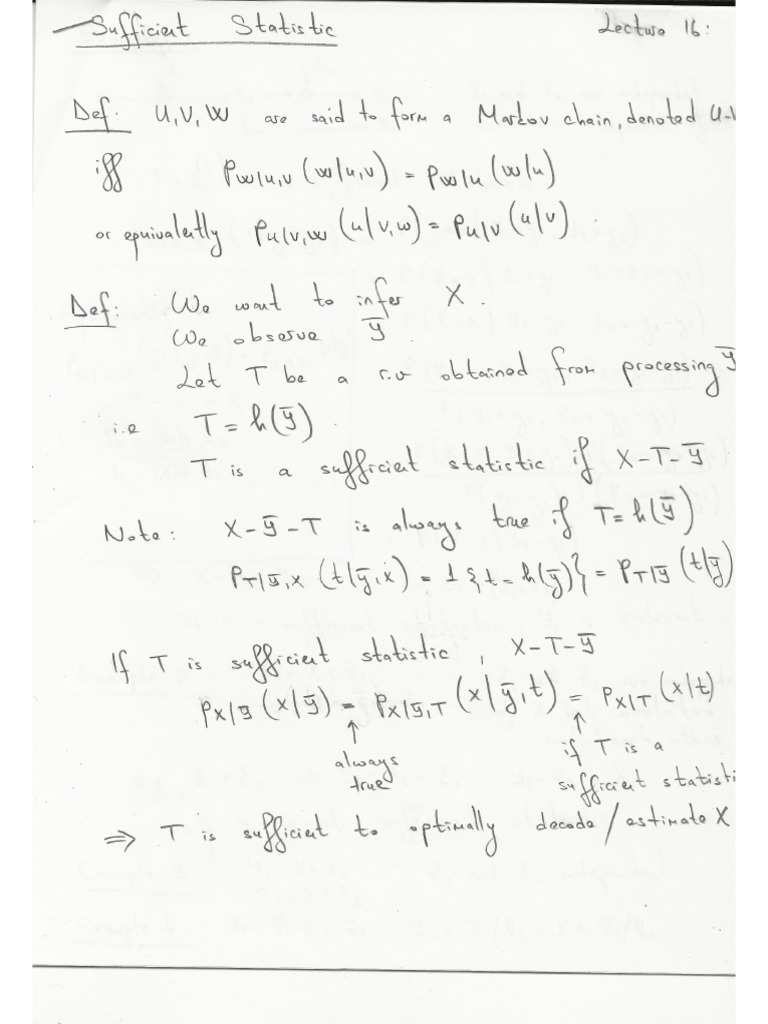 Sufficient Statistic Lecture 16:
Def: U,V,W are said to form a Markov chain, denoted U-V
iff P_{W|U,V}(w|u,v) = P_{W|U}(w|u)
or equivalently P_{U|V,W}(u|v,w) = P_{U|V}(u|v).
Def: We want to infer X.
We observe ȳ
Let T be a r.v obtained from processing ȳ
i.e T = h(ȳ)
T is a sufficient statistic if X-T-ȳ
Note: X-ȳ-T is always true if T=h(ȳ)
P_{T|ȳ,X}(t|ȳ,x) = 1{t=h(ȳ)} = P_{T|ȳ}(t|ȳ)
If T is sufficient statistic, X-T-ȳ
P_{X|ȳ}(x|ȳ) = P_{X|ȳ,T}(x|ȳ,t) = P_{X|T}(x|t)
↑ ↑
always if T is a
true sufficient statisti
⇒ T is sufficient to optimally decode/estimate X